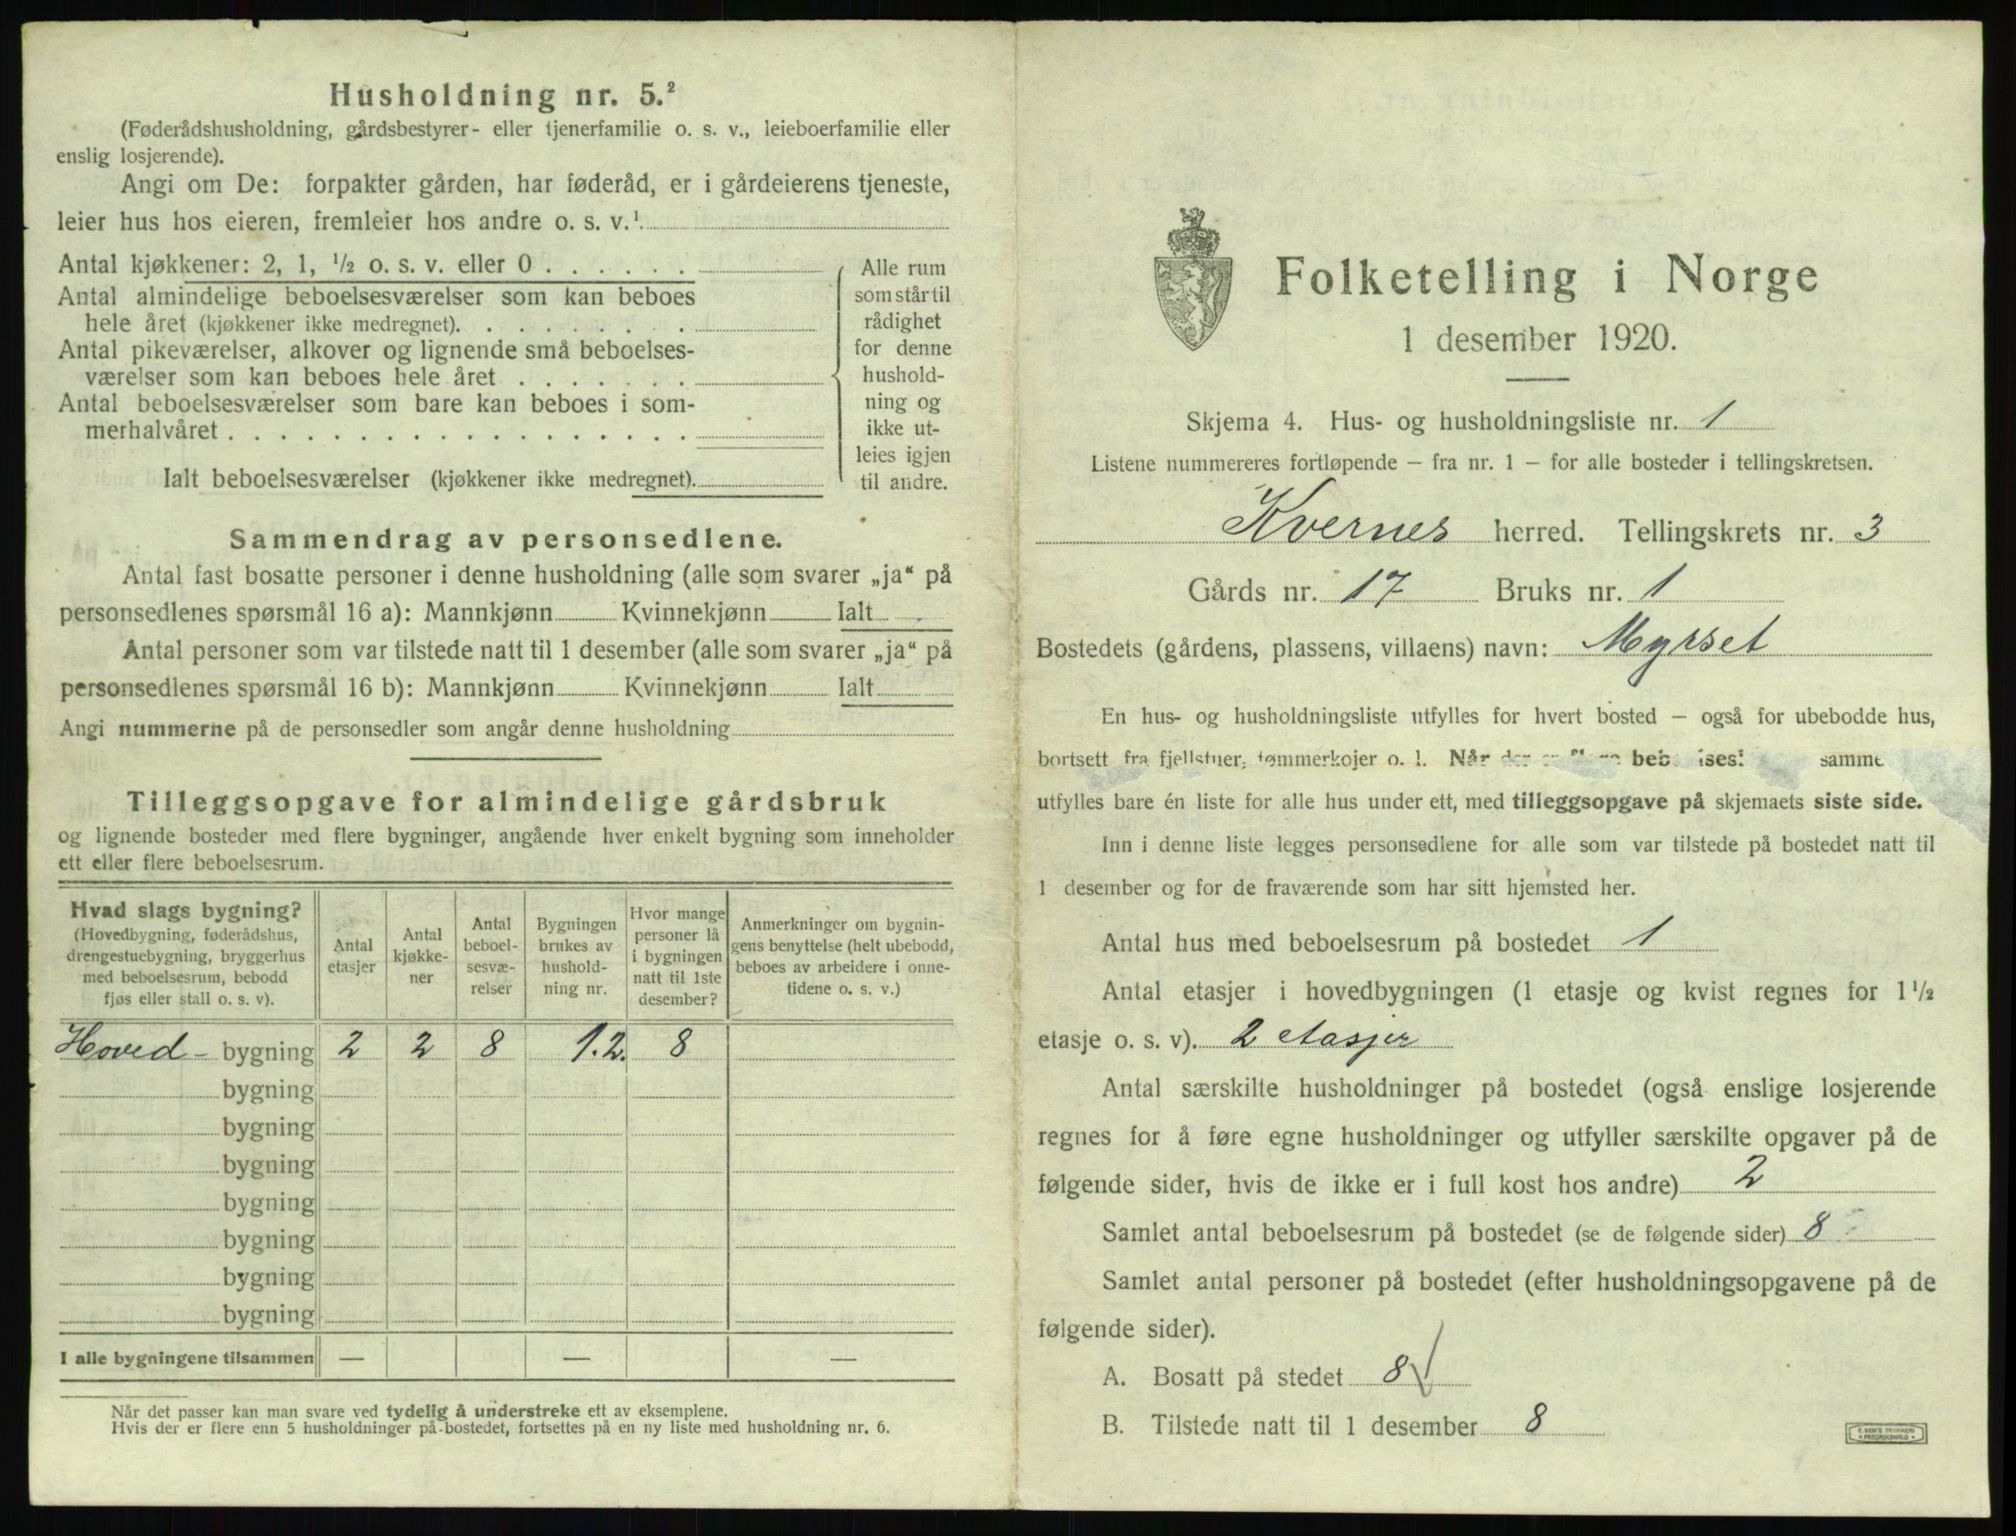 Husholdning nr. 5.²
(Føderådshusholdning, gårdsbestyrer- eller tjenerfamilie o. s. v., leieboerfamilie eller
enslig losjerende).
Angi om De: forpakter gården, har føderåd, er i gårdeierens tjeneste,
leier hus hos eieren, fremleier hos andre o. s. v.¹
Antal kjøkkener: 2, 1, ½ o. s. v. eller 0 . . . . . .
Antal almindelige beboelsesværelser som kan beboes
hele året (kjøkkener ikke medregnet). . . . . . . . .
Antal pikeværelser, alkover og lignende små beboelses-
værelser som kan beboes hele året . . . . . . .
Antal beboelsesværelser som bare kan beboes i som-
merhalvåret . . . . . . . . . . . . . . . . . .
Ialt beboelsesværelser (kjøkkener ikke medregnet).
Alle rum
som står til
rådighet
for denne
hushold-
ning og
ikke ut-
leies igjen
til andre.
Sammendrag av personsedlene.
Antal fast bosatte personer i denne husholdning (alle som svarer „ja“ på
personsedlenes spørsmål 16 a): Mannkjønn Kvinnekjønn Ialt
Antal personer som var tilstede natt til 1 desember (alle som svarer „ja“ på
personsedlenes spørsmål 16 b): Mannkjønn Kvinnekjønn Ialt
Angi nummerne på de personsedler som angår denne husholdning
Tilleggsopgave for almindelige gårdsbruk
og lignende bosteder med flere bygninger, angående hver enkelt bygning som inneholder
ett eller flere beboelsesrum.
Hvad slags bygning?
(Hovedbygning, føderådshus,
drengestuebygning, bryggerhus
med beboelsesrum, bebodd
fjøs eller stall o. s. v).
Antal
etasjer
Antal
kjøkke-
ner
Antal
beboel-
sesvæ-
relser
Bygningen
brukes av
hushold-
ning nr.
Hvor mange
personer lå
i bygningen
natt til 1ste
desember?
Anmerkninger om bygnin-
gens benyttelse (helt ubebodd,
beboes av arbeidere i onne-
tidene o. s. v.)
Hoved- bygning 2 2 8 1.2. 8
bygning
bygning
bygning
bygning
bygning
bygning
bygning
I alle bygningene tilsammen — — —
Når det passer kan man svare ved tydelig å understreke ett av eksemplene.
Hvis der er flere enn 5 husholdninger på bostedet, fortsettes på en ny liste med husholdning nr. 6.
Folketelling i Norge
1 desember 1920.
Skjema 4. Hus- og husholdningsliste nr. 1
Listene nummereres fortløpende – fra nr. 1 – for alle bosteder i tellingskretsen.
Kvernes herred. Tellingskrets nr. 3
Gårds nr. 17 Bruks nr. 1
Bostedets (gårdens, plassens, villaens) navn: Myrset
En hus- og husholdningsliste utfylles for hvert bosted – også for ubebodde hus,
bortsett fra fjellstuer, tømmerkojer o. l. Når der er flere samme
utfylles bare én liste for alle hus under ett, med tilleggsopgave på skjemaets siste side.
Inn i denne liste legges personsedlene for alle som var tilstede på bostedet natt til
1 desember og for de fraværende som har sitt hjemsted her.
Antal hus med beboelsesrum på bostedet 1
Antal etasjer i hovedbygningen (1 etasje og kvist regnes for 1½
etasje o. s. v). 2 etasjer
Antal særskilte husholdninger på bostedet (også enslige losjerende
regnes for å føre egne husholdninger og utfyller særskilte opgaver på de
følgende sider, hvis de ikke er i full kost hos andre) 2
Samlet antal beboelsesrum på bostedet (se de følgende sider) 8
Samlet antal personer på bostedet (efter husholdningsopgavene på de
følgende sider).
A. Bosatt på stedet 8 √
B. Tilstede natt til 1 desember 8